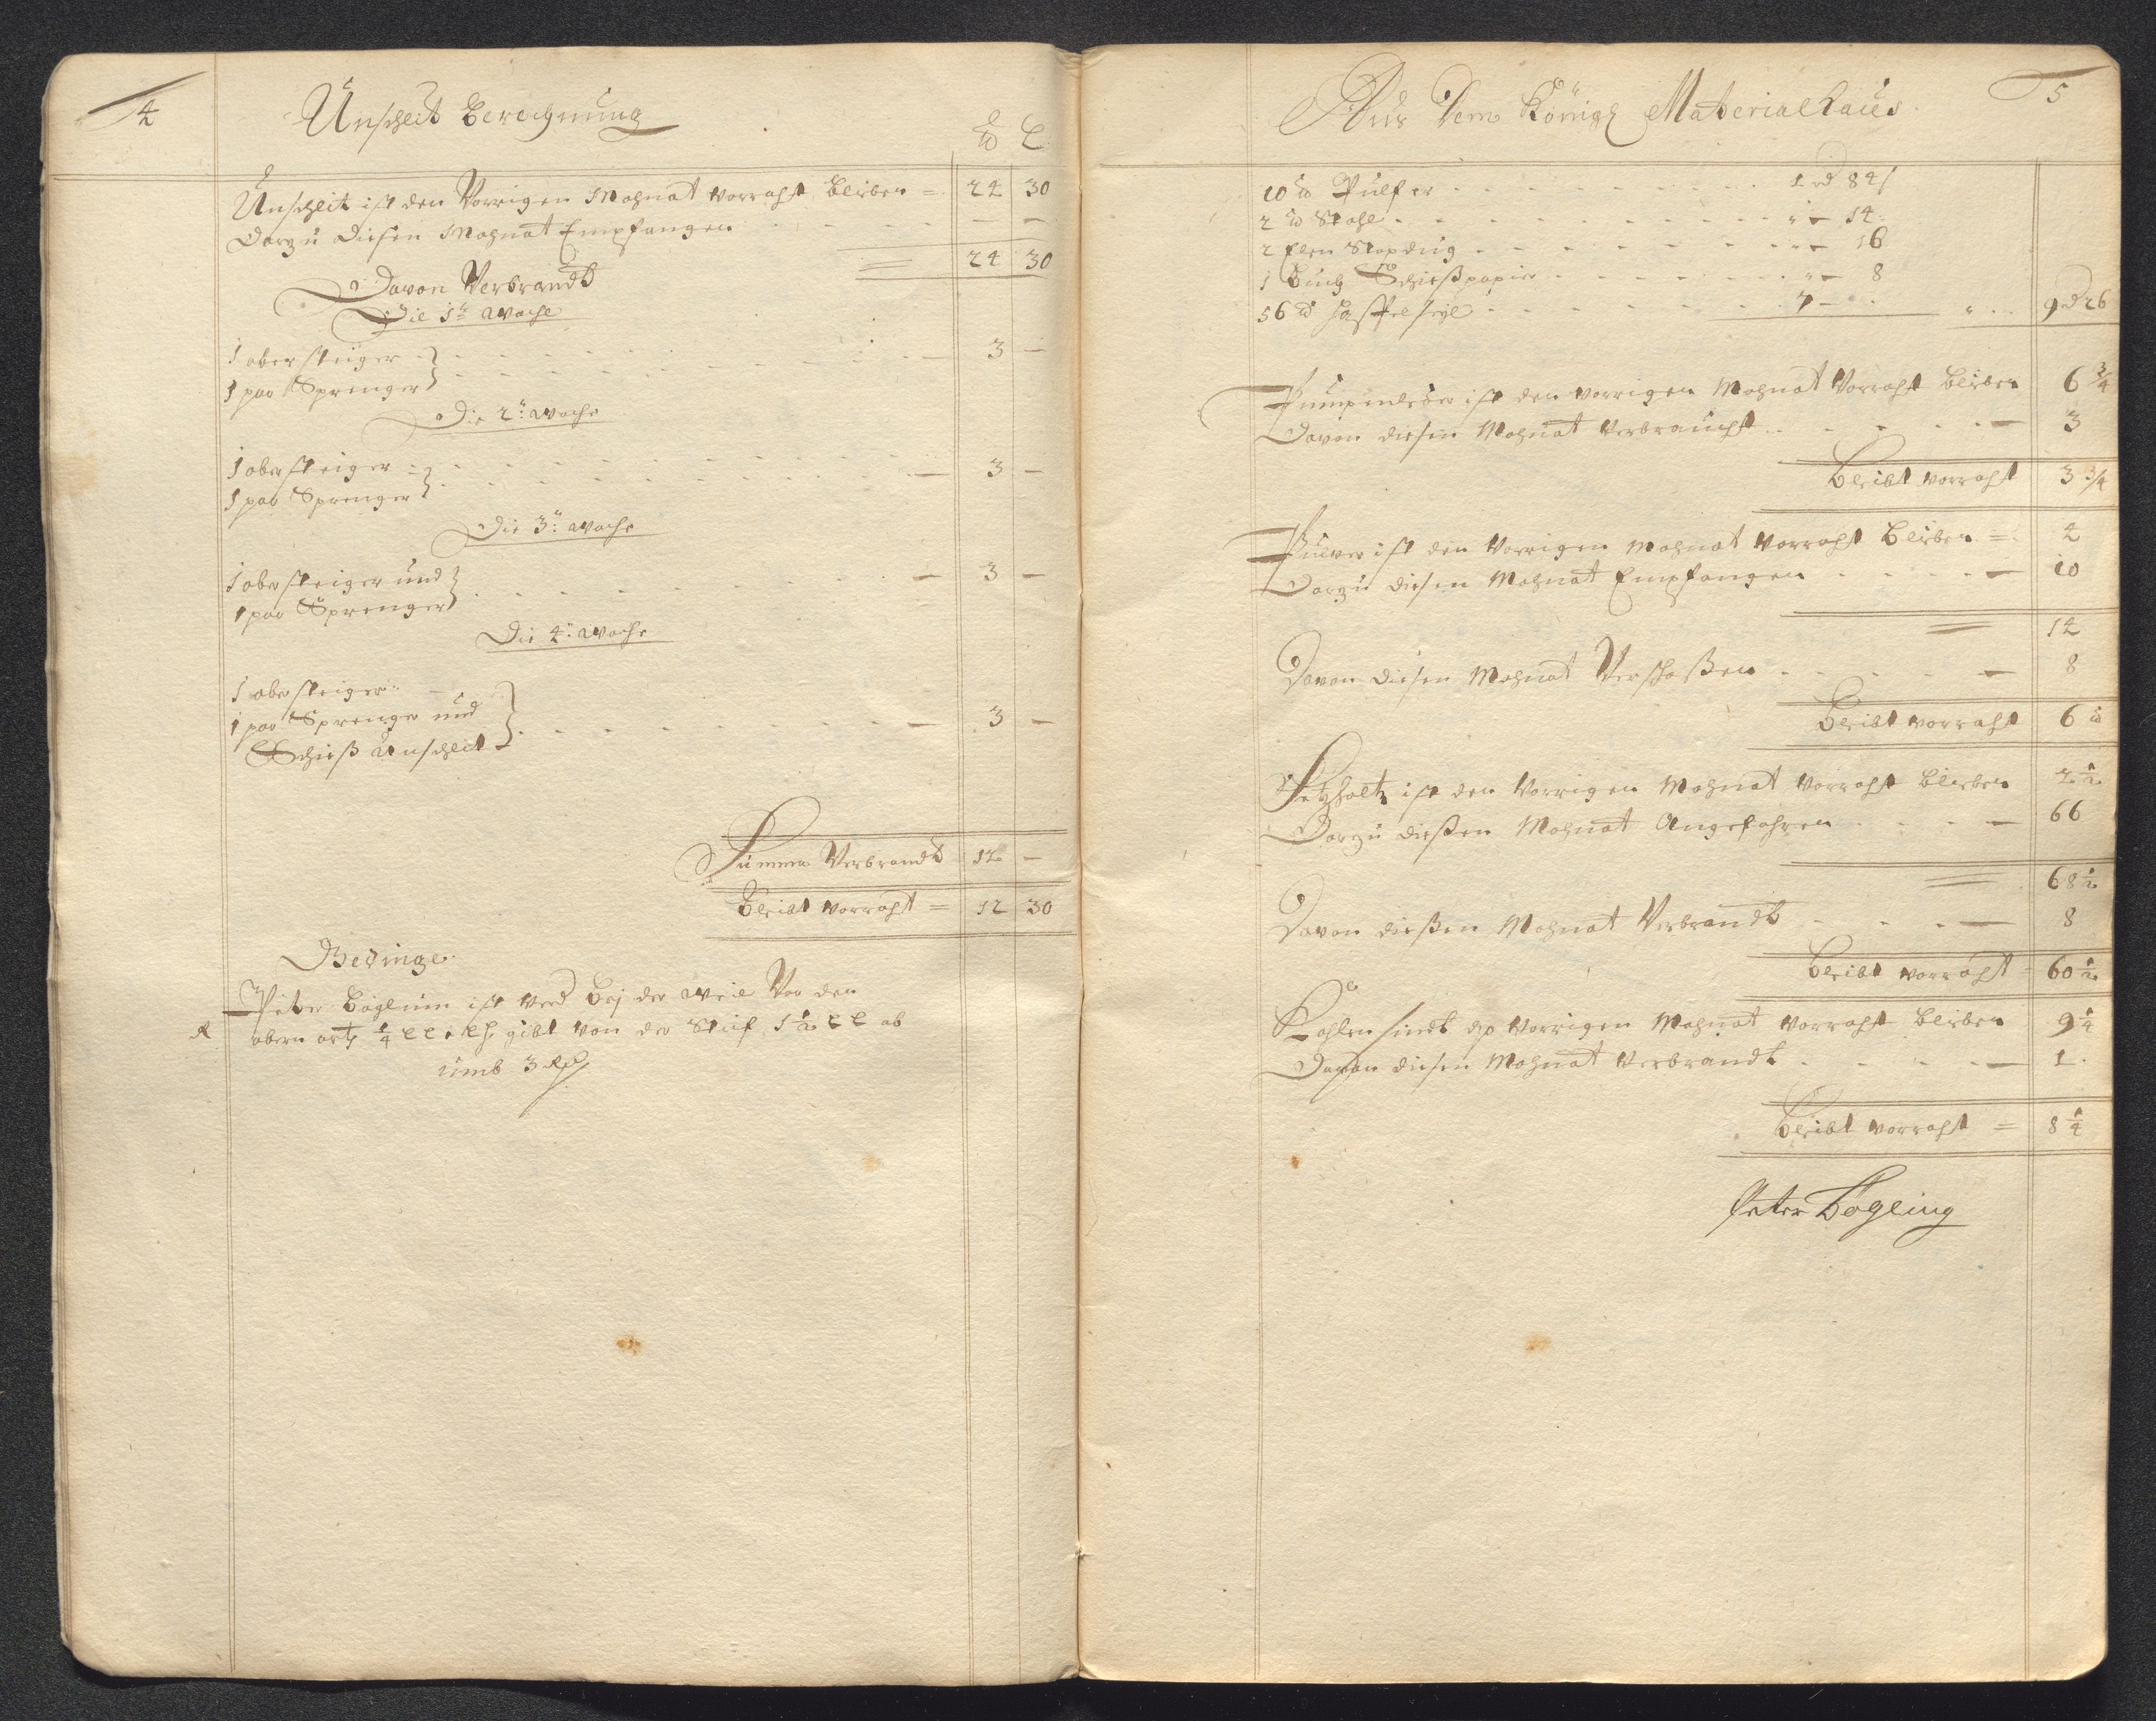 4
Unscheit Berechnung
℔ L
Unscheit ist den Vorrigen Mohnat vorraht bleiben = 24 30
Darzu diesen Mohnat Empfangen - -
24 30
Davon Verbrandt
Die 1te Woche
1 obersteiger
1 par Sprenger } 3 -
Die 2te Woche
1 obersteiger
1 par Sprenger } 3 -
Die 3te Woche
1 obersteiger und
1 par Sprenger } 3 -
Die 4te Woche
1 obersteiger
1 par Sprenger und
Schieß Unscheit } 3 -
Summa Verbrandt 12 -
bleibt vorraht = 12 30
Gedinge
Peter Böglum ist bej der weil Vor den
obern ort 1/4 gibt von der 1 1/2 ab
umb 3
5
Aus Dem Königl Materialhaus
10 ℔ Pulfer 1 rd 84 s
2 ℔ Stahl " - 14
2 Elen " - 16
1 Buch Schießpapir " - 8
56 ℔ Haspelseyl 7 - 9 rd 26
Pumpenleder ist den vorrigen Mohnat Vorraht bleiben 6 3/4
Davon diesen Mohnat verbraucht 3
bleibt vorraht 3 3/4
Pulver ist den Vorrigen Mohnat vorraht bleiben = 4
Darzu diesen Mohnat Empfangen 10
14
Davon diesen Mohnat Verschoßen 8
bleibt vorraht 6 ℔
Setzholtz ist den Vorrigen Mohnat vorraht bleiben 2 1/2
Darzu dießen Mohnat Angefahren 66
68 1/2
Davon dießen Mohnat Verbrandt 8
bleibt vorraht 60 1/2
Kohlen sindt Vorrigen Mohnat vorraht bleiben 9 1/4
Davon diesen Mohnat verbrandt 1
bleibt vorraht = 8 1/4
Peter Bögling